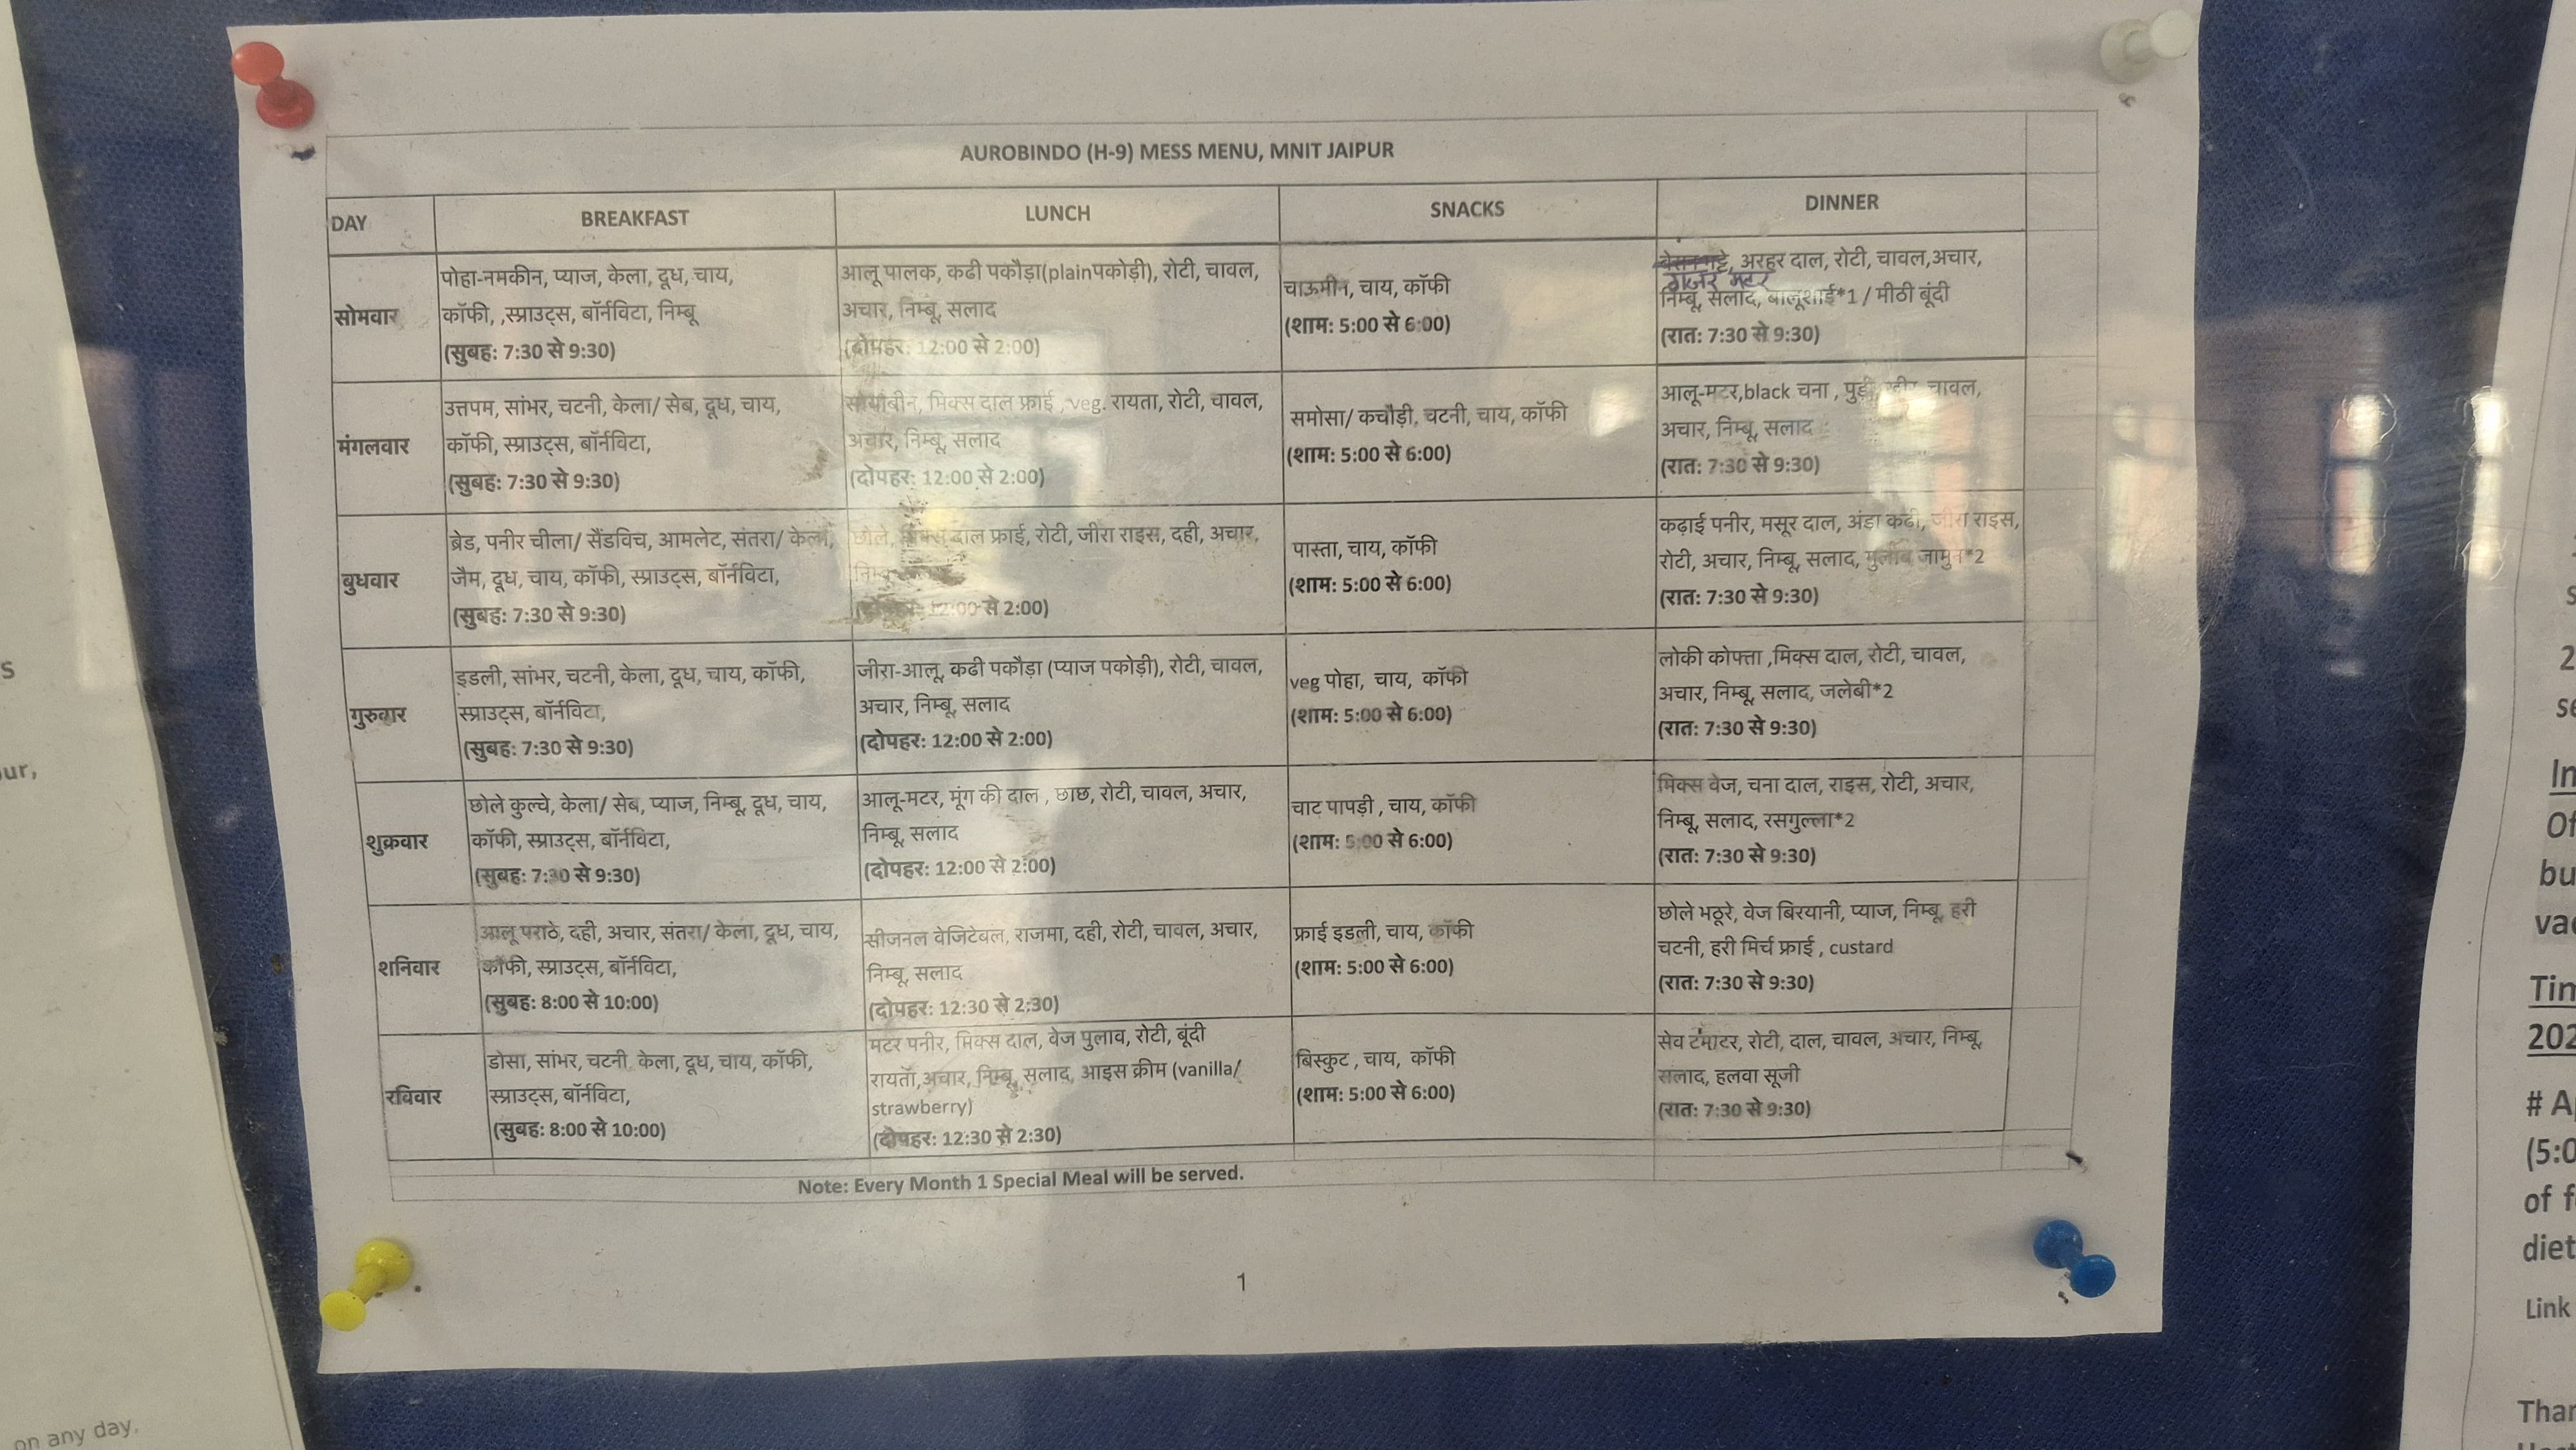 AUROBINDO (H-9) MESS MENU, MNIT JAIPUR
DAY
BREAKFAST
LUNCH
SNACKS
DINNER
सोमवार
पोहा-नमकीन, प्याज, केला, दूध, चाय,
कॉफी, ,स्प्राउट्स, बॉर्नविटा, निम्बू
(सुबह: 7:30 से 9:30)
आलू पालक, कढी पकौड़ा(plainपकोड़ी), रोटी, चावल,
अचार, निम्बू, सलाद
(दोपहर: 12:00 से 2:00)
चाऊमीन, चाय, कॉफी
(शाम: 5:00 से 6:00)
अरहर दाल, रोटी, चावल,अचार,
गाजर मटर
निम्बू, सलाद, बालूशाई*1 / मीठी बूंदी
(रात: 7:30 से 9:30)
मंगलवार
उत्तपम, सांभर, चटनी, केला/ सेब, दूध, चाय,
कॉफी, स्प्राउट्स, बॉर्नविटा,
(सुबह: 7:30 से 9:30)
सोयाबीन, मिक्स दाल फ्राई , veg. रायता, रोटी, चावल,
अचार, निम्बू, सलाद
(दोपहर: 12:00 से 2:00)
समोसा/ कचौड़ी, चटनी, चाय, कॉफी
(शाम: 5:00 से 6:00)
आलू-मटर,black चना , चावल,
अचार, निम्बू, सलाद
(रात: 7:30 से 9:30)
बुधवार
ब्रेड, पनीर चीला/ सैंडविच, आमलेट, संतरा/ केला,
जैम, दूध, चाय, कॉफी, स्प्राउट्स, बॉर्नविटा,
(सुबह: 7:30 से 9:30)
छोले, मिक्स दाल फ्राई, रोटी, जीरा राइस, दही, अचार,
(दोपहर: 12:00 से 2:00)
पास्ता, चाय, कॉफी
(शाम: 5:00 से 6:00)
कढ़ाई पनीर, मसूर दाल, अंडा कढ़ी, जीरा राइस,
रोटी, अचार, निम्बू, सलाद, गुलाब जामुन*2
(रात: 7:30 से 9:30)
गुरुवार
इडली, सांभर, चटनी, केला, दूध, चाय, कॉफी,
स्प्राउट्स, बॉर्नविटा,
(सुबह: 7:30 से 9:30)
जीरा-आलू, कढी पकौड़ा (प्याज पकोड़ी), रोटी, चावल,
अचार, निम्बू, सलाद
(दोपहर: 12:00 से 2:00)
veg पोहा, चाय, कॉफी
(शाम: 5:00 से 6:00)
लोकी कोफ्ता ,मिक्स दाल, रोटी, चावल,
अचार, निम्बू, सलाद, जलेबी*2
(रात: 7:30 से 9:30)
शुक्रवार
छोले कुल्चे, केला/ सेब, प्याज, निम्बू, दूध, चाय,
कॉफी, स्प्राउट्स, बॉर्नविटा,
(सुबह: 7:30 से 9:30)
आलू-मटर, मूंग की दाल , छाछ, रोटी, चावल, अचार,
निम्बू, सलाद
(दोपहर: 12:00 से 2:00)
चाट पापड़ी , चाय, कॉफी
(शाम: 5:00 से 6:00)
मिक्स वेज, चना दाल, राइस, रोटी, अचार,
निम्बू, सलाद, रसगुल्ला*2
(रात: 7:30 से 9:30)
शनिवार
आलू पराठे, दही, अचार, संतरा/ केला, दूध, चाय,
कॉफी, स्प्राउट्स, बॉर्नविटा,
(सुबह: 8:00 से 10:00)
सीजनल वेजिटेबल, राजमा, दही, रोटी, चावल, अचार,
निम्बू, सलाद
(दोपहर: 12:30 से 2:30)
फ्राई इडली, चाय, कॉफी
(शाम: 5:00 से 6:00)
छोले भठूरे, वेज बिरयानी, प्याज, निम्बू, हरी
चटनी, हरी मिर्च फ्राई , custard
(रात: 7:30 से 9:30)
रविवार
डोसा, सांभर, चटनी, केला, दूध, चाय, कॉफी,
स्प्राउट्स, बॉर्नविटा,
(सुबह: 8:00 से 10:00)
मटर पनीर, मिक्स दाल, वेज पुलाव, रोटी, बूंदी
रायता,अचार, निम्बू, सलाद, आइस क्रीम (vanilla/
strawberry)
(दोपहर: 12:30 से 2:30)
बिस्कुट , चाय, कॉफी
(शाम: 5:00 से 6:00)
सेव टमाटर, रोटी, दाल, चावल, अचार, निम्बू,
सलाद, हलवा सूजी
(रात: 7:30 से 9:30)
Note: Every Month 1 Special Meal will be served.
1
on any day.
202
# A
(5:0
of f
diet
Link